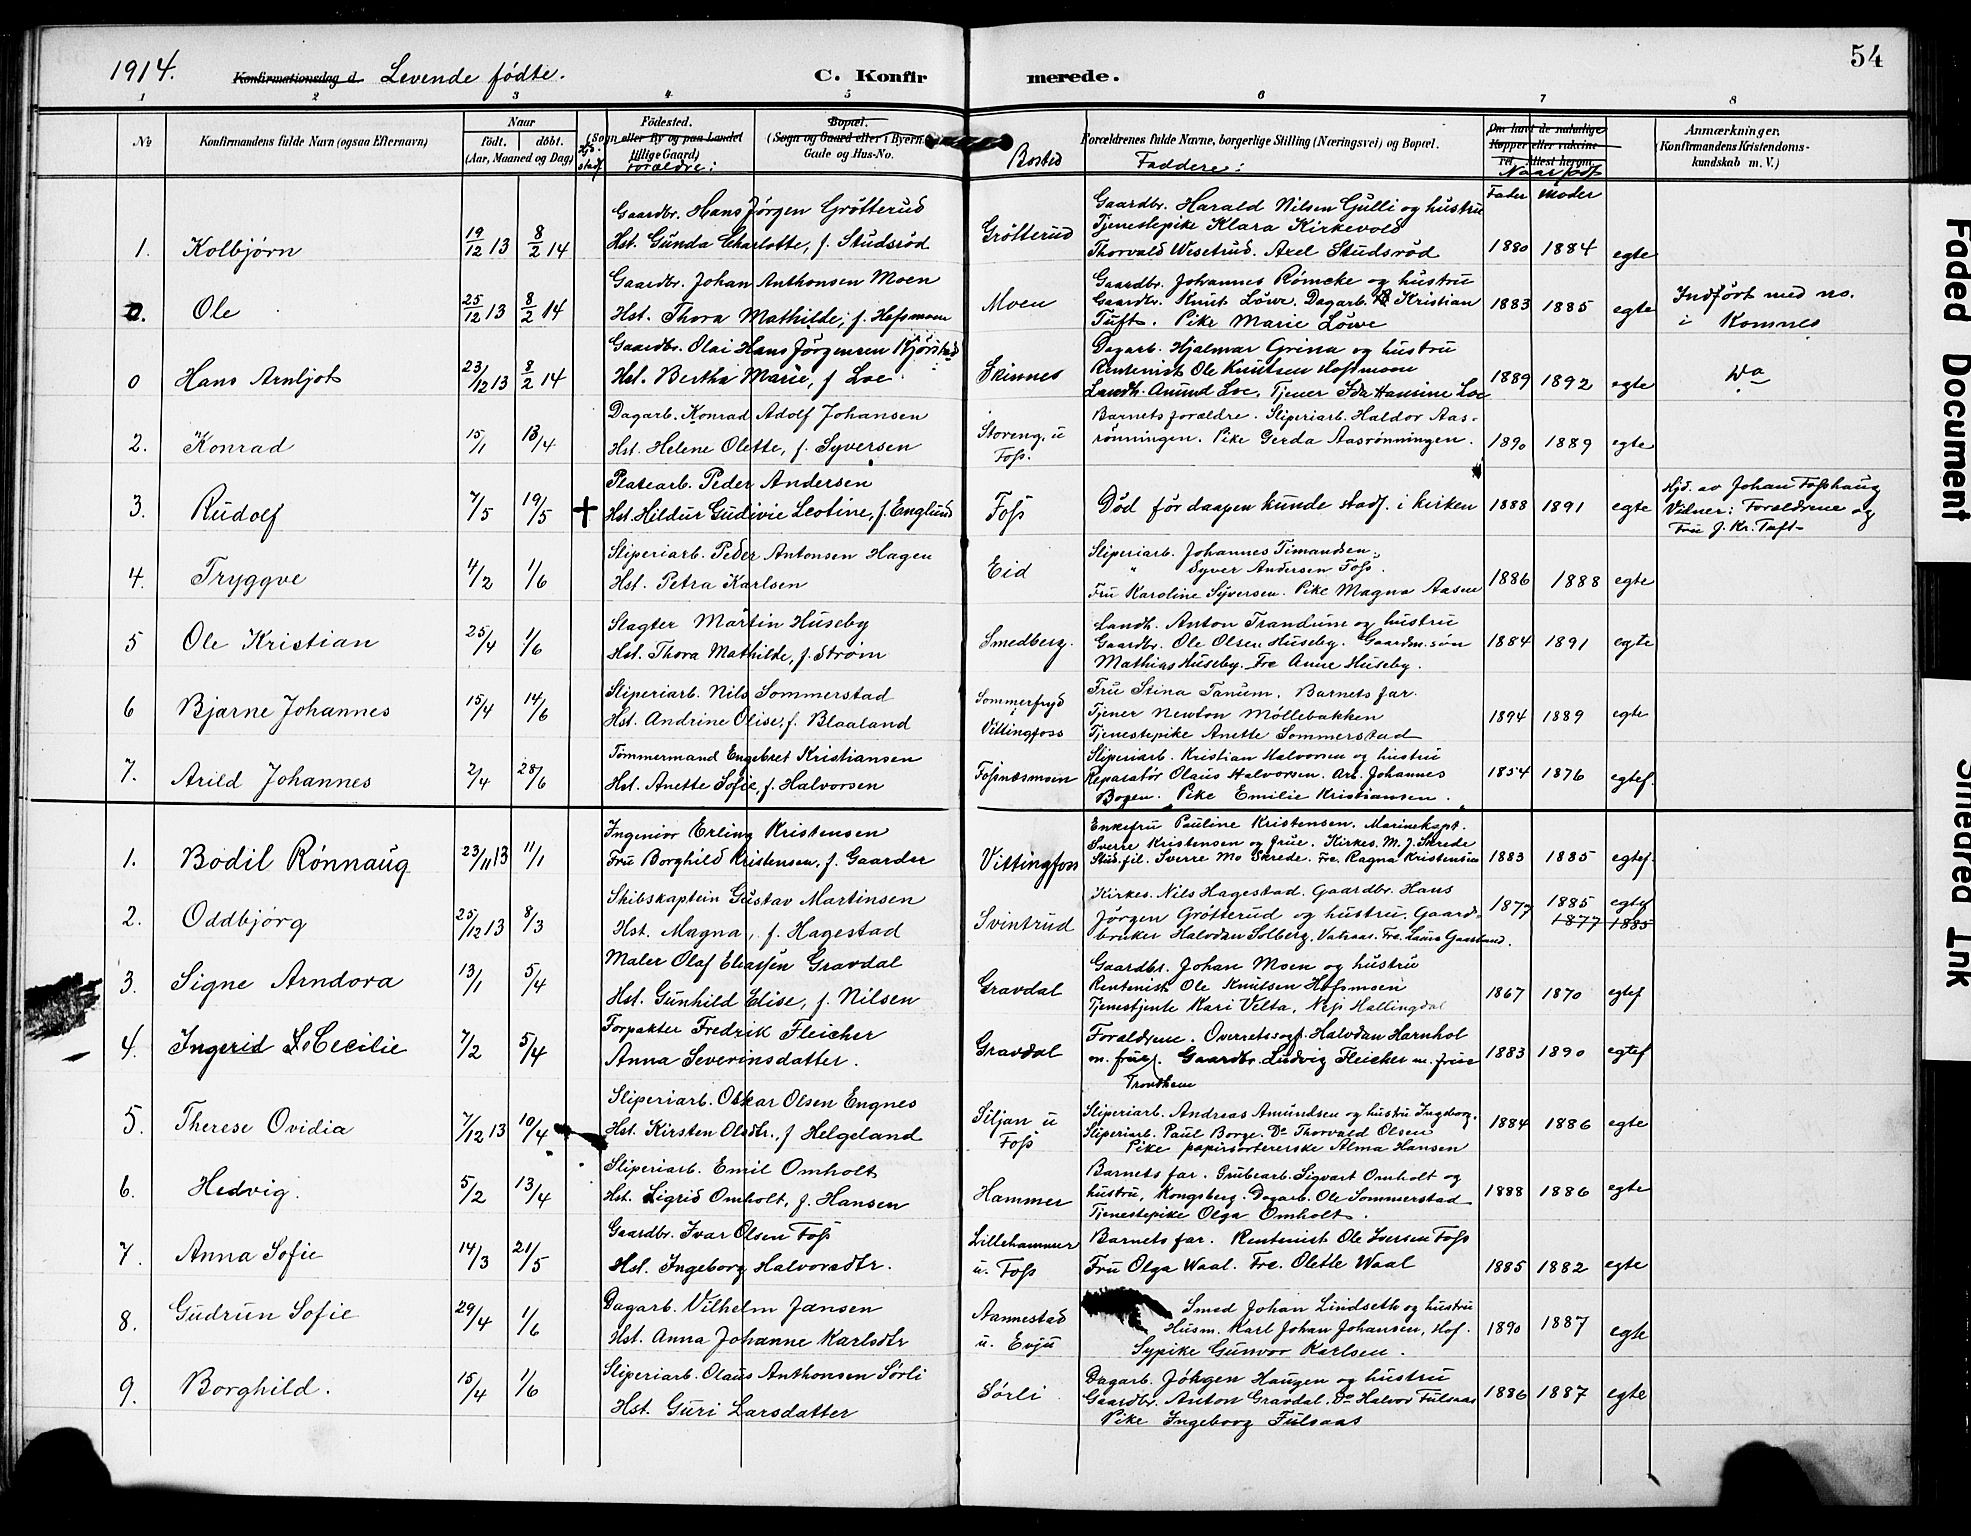 1914. Konfirmationsdag d. Levende fødte. C. Konfir merede. 54
1 2 3 4 5 6 7 8
No Konfirmandens fulde Navn (ogsaa Efternavn) Naar født. døbt. (Aar, Maaned og Dag) Hjd. stadf. Fødested. (Sogn eller By og paa Landet tillige Gaard) Forældre: Bopæl. (Sogn og Gaard eller i Byerne Gade og Hus-No. Bosted Forældrenes fulde Navne, borgerlige Stilling (Næringsvei) og Bopæl. Faddere: Om havt de naturlige Kopper eller vakcineret, Attest herom. Naar født Fader Moder Anmærkninger. (Konfirmandens Kristendomskundskab m. V.)
Gaardbr. Hans Jørgen Grøtterud Gaardbr. Harald Nilsen Gulli og hustru
1. Kolbjørn 19/12 13 8/2 14 Hst. Gunda Charlotte, f. Studsrød Grøtterud Tjenestepike Klara Kirkevold 1880 1884 egte
Thorvald Wesetrud. Axel Studsrød
Gaardbr. Johan Anthonsen Moen Gaardbr. Johannes Rømcke og hustru
0. Ole 25/12 13 8/2 14 Hst. Thora Mathilde, f. Hofsmoen Moen Gaardbr. Knut Løwe. Dagarb. Kristian 1883 1885 egte Indført med no. i Komnes
Tuft. Pike Marie Løwe
Gaardbr. Olai Hans Jørgensen Kjørstad Dagarb. Hjalmar Grina og hustru
0 Hans Arnljot 23/12 13 8/2 14 Hst. Bertha Marie, f. Loe Skinnes Rentenist Ole Knutsen Hofsmoen 1889 1892 egte Do
Landh. Amund Loe. Tjener Ida Hansine Loe
Dagarb. Konrad Adolf Johansen Barnets forældre. Sliperiarb. Haldor Aas-
2. Konrad 15/1 13/4 Hst. Helene Olette, f. Syversen Storeng, u Foss. rønningen. Pike Gerda Aasrønningen. 1890 1889 egte
Platearb. Peder Andersen
3. Rudolf 7/5 19/5 † Hst. Hildur Gudivie Leotine, f. Englund Foss Død før daapen kunde stadf. i kirken 1888 1891 egte Hjd. av Johan Fosshaug Vitner: Forældrene og Fru J. Kr. Tuft
Sliperiarb. Peder Antonsen Hagen Sliperiarb. Johannes Timandsen.
4. Tryggve 4/2 1/6 Hst. Petra Karlsen Eid " Syver Andersen Foss. 1886 1888 egte
Fru Karoline Syversen. Pike Magna Aasen
Slagter Martin Huseby Landh. Anton Trandum og hustru
5 Ole Kristian 25/4 1/6 Hst. Thora Mathilde, f. Strøm Smedberg. Gaardbr. Ole Olsen Huseby. Gaardm.søn 1884 1891 egte
Mathias Huseby. Frk Anne Huseby.
Sliperiarb. Nils Sommerstad Fru Stina Tanum. Barnets far.
6 Bjarne Johannes 15/4 14/6 Hst. Andrine Olise, f. Blaaland Sommerfryd Vittingfoss Tjener Newton Møllebakken 1894 1889 egte
Tjenestepike Anette Sommerstad
Tømmermand Engebret Kristiansen Sliperiarb. Kristian Halvorsen og hustru
7. Arild Johannes 2/4 28/6 Hst. Anette Sofie, f. Halvorsen Fossnæsmoen Reparatør Olaus Halvorsen. Arb. Johannes 1854 1876 egtef.
Bogen. Pike Emilie Kristiansen.
Ingeniør Erling Kristensen Enkefru Pauline Kristensen. Marinekapt.
1. Bodil Rønnaug 23/11 13 11/1 Fru Borghild Kristensen, f. Gaarder Vittingfoss Sverre Kristensen og frue. Kirkes. M. J. Skrede 1883 1885 egtef.
Stud. fil. Sverre Mo Skrede. Frk. Ragna Kristensen
Skibskaptein Gustav Martinsen Kirkes. Nils Hagestad. Gaardbr. Hans
2. Oddbjørg 25/12 13 8/3 Hst. Magna, f. Hagestad Svintrud Jørgen Grøtterud og hustru. Gaard- 1877 1885 egtef 1877 1885
bruker Halvdan Solberg, Vatnaas. Frk. Laura Gaasland.
Maler Olaf Eliassen Gravdal Gaardbr. Johan Moen og hustru
3. Signe Arndora 13/1 5/4 Hst. Gunhild Elise, f. Nilsen Gravdal Rentenist Ole Knutsen Hofsmoen 1867 1870 egtef
Tjenestjente Kari Velta, Nes Hallingdal
Forpakter Fredrik Fleicher Forældrene. Overretssagf. Halvdan Harnhol
4. Ingerid Cecilie 7/2 5/4 Anna Severinsdatter. Gravdal m. frue. Gaardbr. Ludvig Fleicher m. frue 1883 1890 egtef
Trondhem
Sliperiarb. Oskar Olsen Engnes Sliperiarb. Andreas Amundsen og hustru Ingeborg.
5. Therese Ovidia 7/12 13 10/4 Hst. Kirsten Olsdtr., f Helgeland Siljan u Foss Sliperiarb. Paul Borge. Do Thorvald Olsen 1884 1886 egte
Pike papirsortererske Alma Hansen
Sliperiarb. Emil Omholt Barnets far. Grubearb. Sigvart Omholt og
6. Hedvig. 5/2 13/4 Hst. Sigrid Omholt, f. Hansen Hammer hustru, Kongsberg. Dagarb. Ole Sommerstad 1888 1886 egte
Tjenestepike Olga Omholt.
Gaardbr. Ivar Olsen Foss Barnets far. Rentenist Ole Iversen Foss
7. Anna Sofie 14/3 21/5 Hst. Ingeborg Halvorsdtr. Lillehammer u. Foss Fru Olga Waal. Frk. Olette Waal 1885 1882 egte
Dagarb. Vilhelm Jansen Smed Johan Lindseth og hustru
8. Gudrun Sofie 29/4 1/6 Hst. Anna Johanne Karlsdtr Aannestad u. Evju Husm. Karl Johan Johansen, Hof. 1890 1887 egte
Sypike Gunvor Karlsen.
Sliperiarb. Olaus Anthonsen Sørli Dagarb. Jørgen Haugen og hustru
9. Borghild. 15/4 1/6 Hst. Guri Larsdatter Sørli Gaardbr. Anton Gravdal. Do Halvor Fulsaas 1886 1887 egte
Pike Ingeborg Fulsaas
Faded Document
Smeared Ink